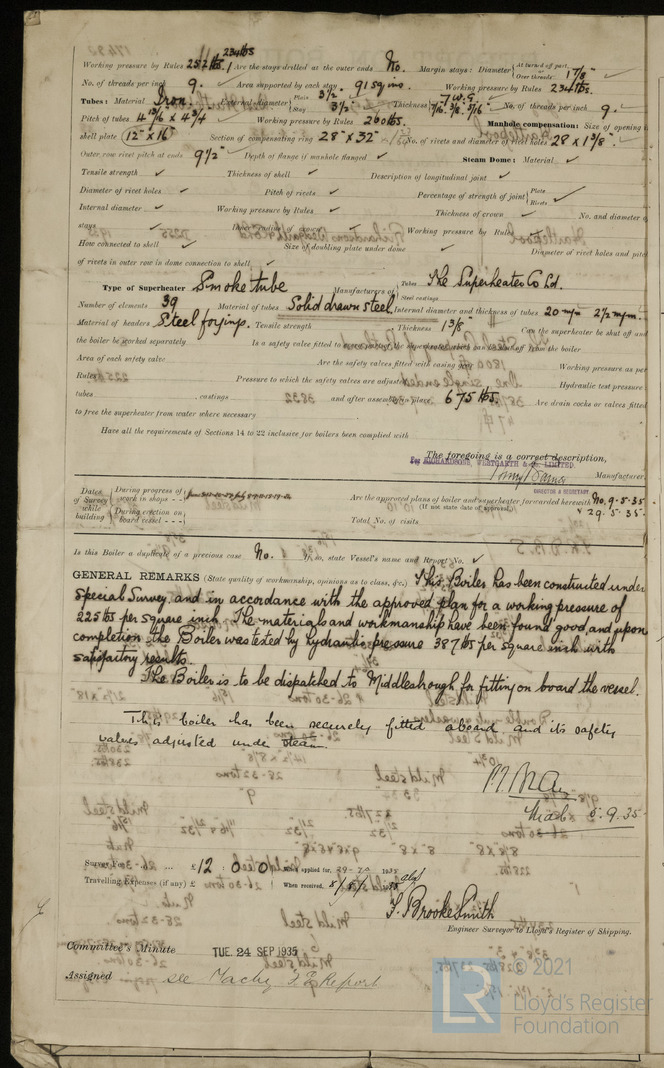 Working pressure by Rules 252 lbs. 234 lbs Are the stays drilled at the outer ends No. Margin stays: Diameter At turned off part, Over threads 1 7/8"
No. of threads per inch 9. Area supported by each stay 91 sq ins. Working pressure by Rules 234 lbs.
Tubes: Material Iron. External diameter Plain 3 1/2" Stay 3 1/2" Thickness 7 W.G. 7/16" 3/8" 5/16" No. of threads per inch 9.
Pitch of tubes 4 13/16 x 4 3/4 Working pressure by Rules 260 lbs. Manhole compensation: Size of opening in
shell plate 12" x 16" Section of compensating ring 28" x 32" No. of rivets and diameter of rivet holes 28 x 1 3/8".
Outer row rivet pitch at ends 9 1/2" Depth of flange if manhole flanged Steam Dome: Material
Tensile strength Thickness of shell Description of longitudinal joint
Diameter of rivet holes Pitch of rivets Percentage of strength of joint Plate Rivets
Internal diameter Working pressure by Rules Thickness of crown No. and diameter of
stays Working pressure by Rules
How connected to shell Size of doubling plate under dome Diameter of rivet holes and pitch
of rivets in outer row in dome connection to shell
Type of Superheater Smoke tube Manufacturers of Tubes Steel castings The Superheater Co Ld.
Number of elements 39 Material of tubes Solid drawn steel. Internal diameter and thickness of tubes 20 m/m 2 1/2 m/m.
Material of headers Steel forging. Tensile strength Thickness 1 3/8" Can the superheater be shut off and
the boiler be worked separately Is a safety valve fitted to
Area of each safety valve Are the safety valves fitted with easing gear Working pressure as per
Rules Pressure to which the safety valves are adjusted Hydraulic test pressure:
tubes castings and after assembly in place 675 lbs. Are drain cocks or valves fitted
to free the superheater from water where necessary
Have all the requirements of Sections 14 to 22 inclusive for boilers been complied with
The foregoing is a correct description,
For RICHARDSONS, WESTGARTH & Co. LIMITED.
Manufacturer
DIRECTOR & SECRETARY
Dates of Survey while building During progress of work in shops - - During erection on board vessel - - -
Are the approved plans of boiler and superheater forwarded herewith No. 9.5.35
(If not state date of approval.) & 29.5.35.
Total No. of visits
Is this Boiler a duplicate of a previous case No. If so, state Vessel's name and Report No.
GENERAL REMARKS (State quality of workmanship, opinions as to class, &c.) This Boiler has been constructed under
Special Survey and in accordance with the approved plan for a working pressure of
225 lbs per square inch. The materials and workmanship have been found good, and upon
completion the Boiler was tested by hydraulic pressure 387 lbs per square inch with
satisfactory results.
The Boiler is to be dispatched to Middlesbrough for fitting on board the vessel.
This boiler has been securely fitted aboard and its safety
valves adjusted under steam.
Midb 5.9.35
Survey Fee ... £ 12 : 0 : 0 When applied for, 29-7- 1935
Travelling Expenses (if any) £ When received, 1935
F. Brooke Smith
Engineer Surveyor to Lloyd's Register of Shipping.
Committee's Minute TUE. 24 SEP 1935
Assigned see Machy F.E. Report
© 2021
LR
Lloyd's Register
Foundation